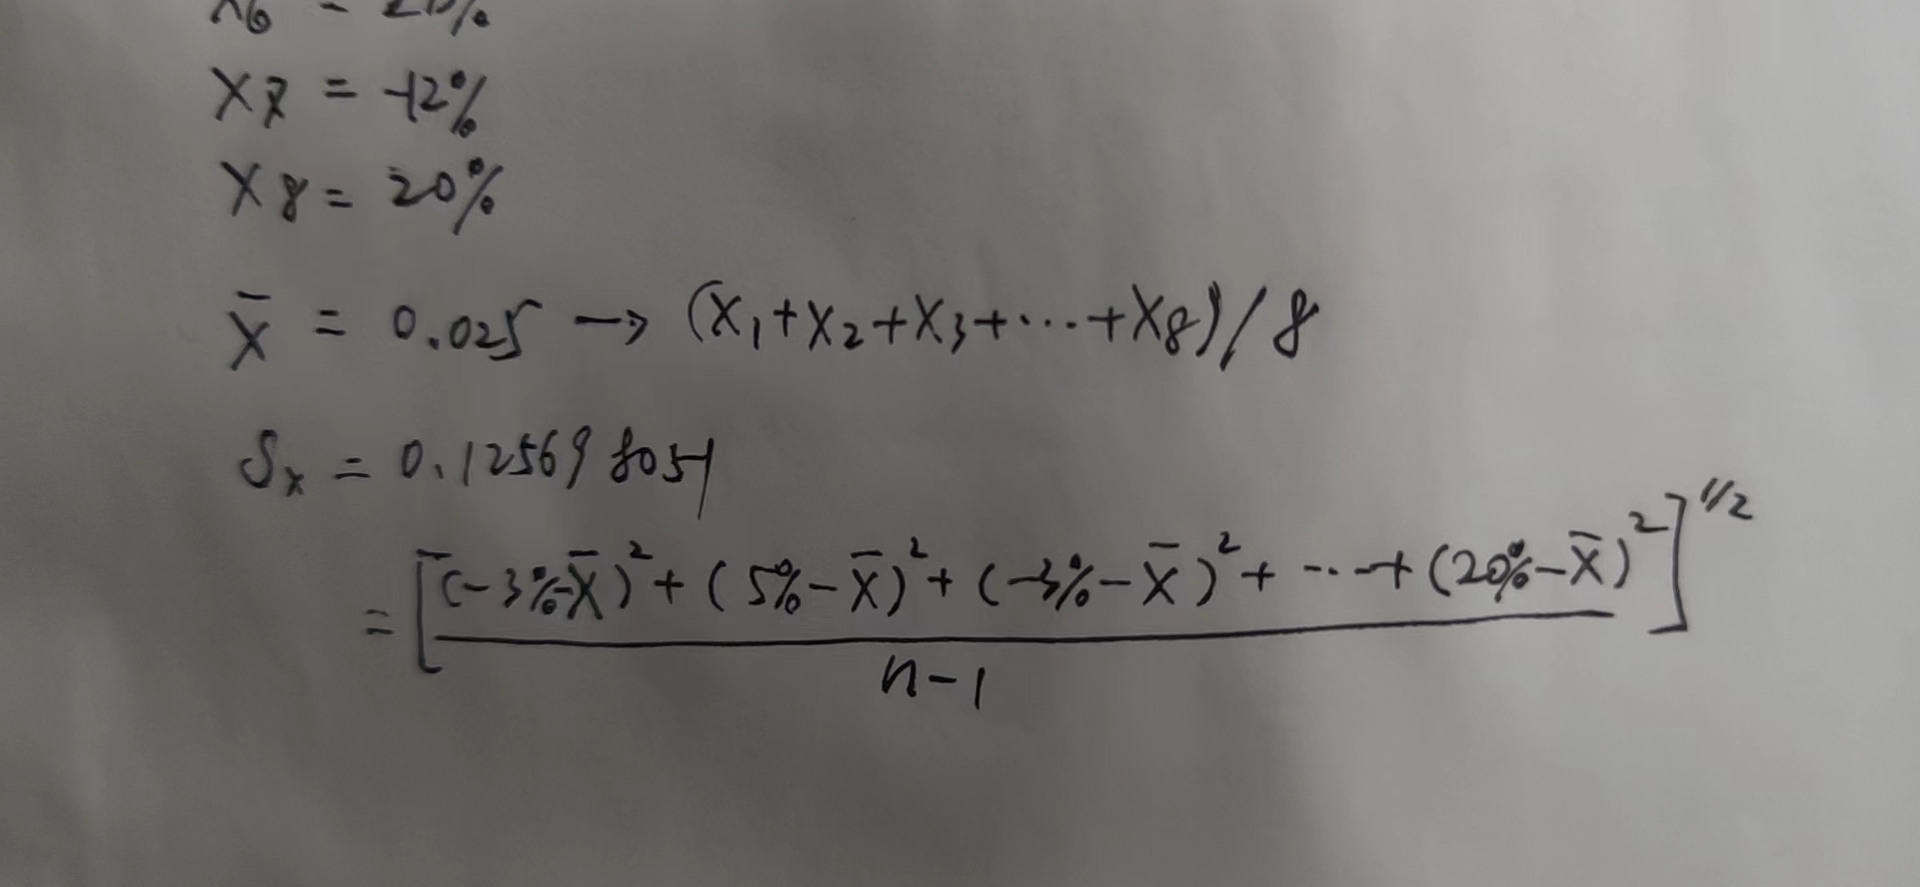 X7 = -12%
X8 = 20%
X̄ = 0.025 → (X₁+X₂+X₃+⋯+X₈)/8
Sx = 0.125698051
= [(-3%-X̄)²+(5%-X̄)²+(-3%-X̄)²+⋯+(20%-X̄)²]^1/2
n-1